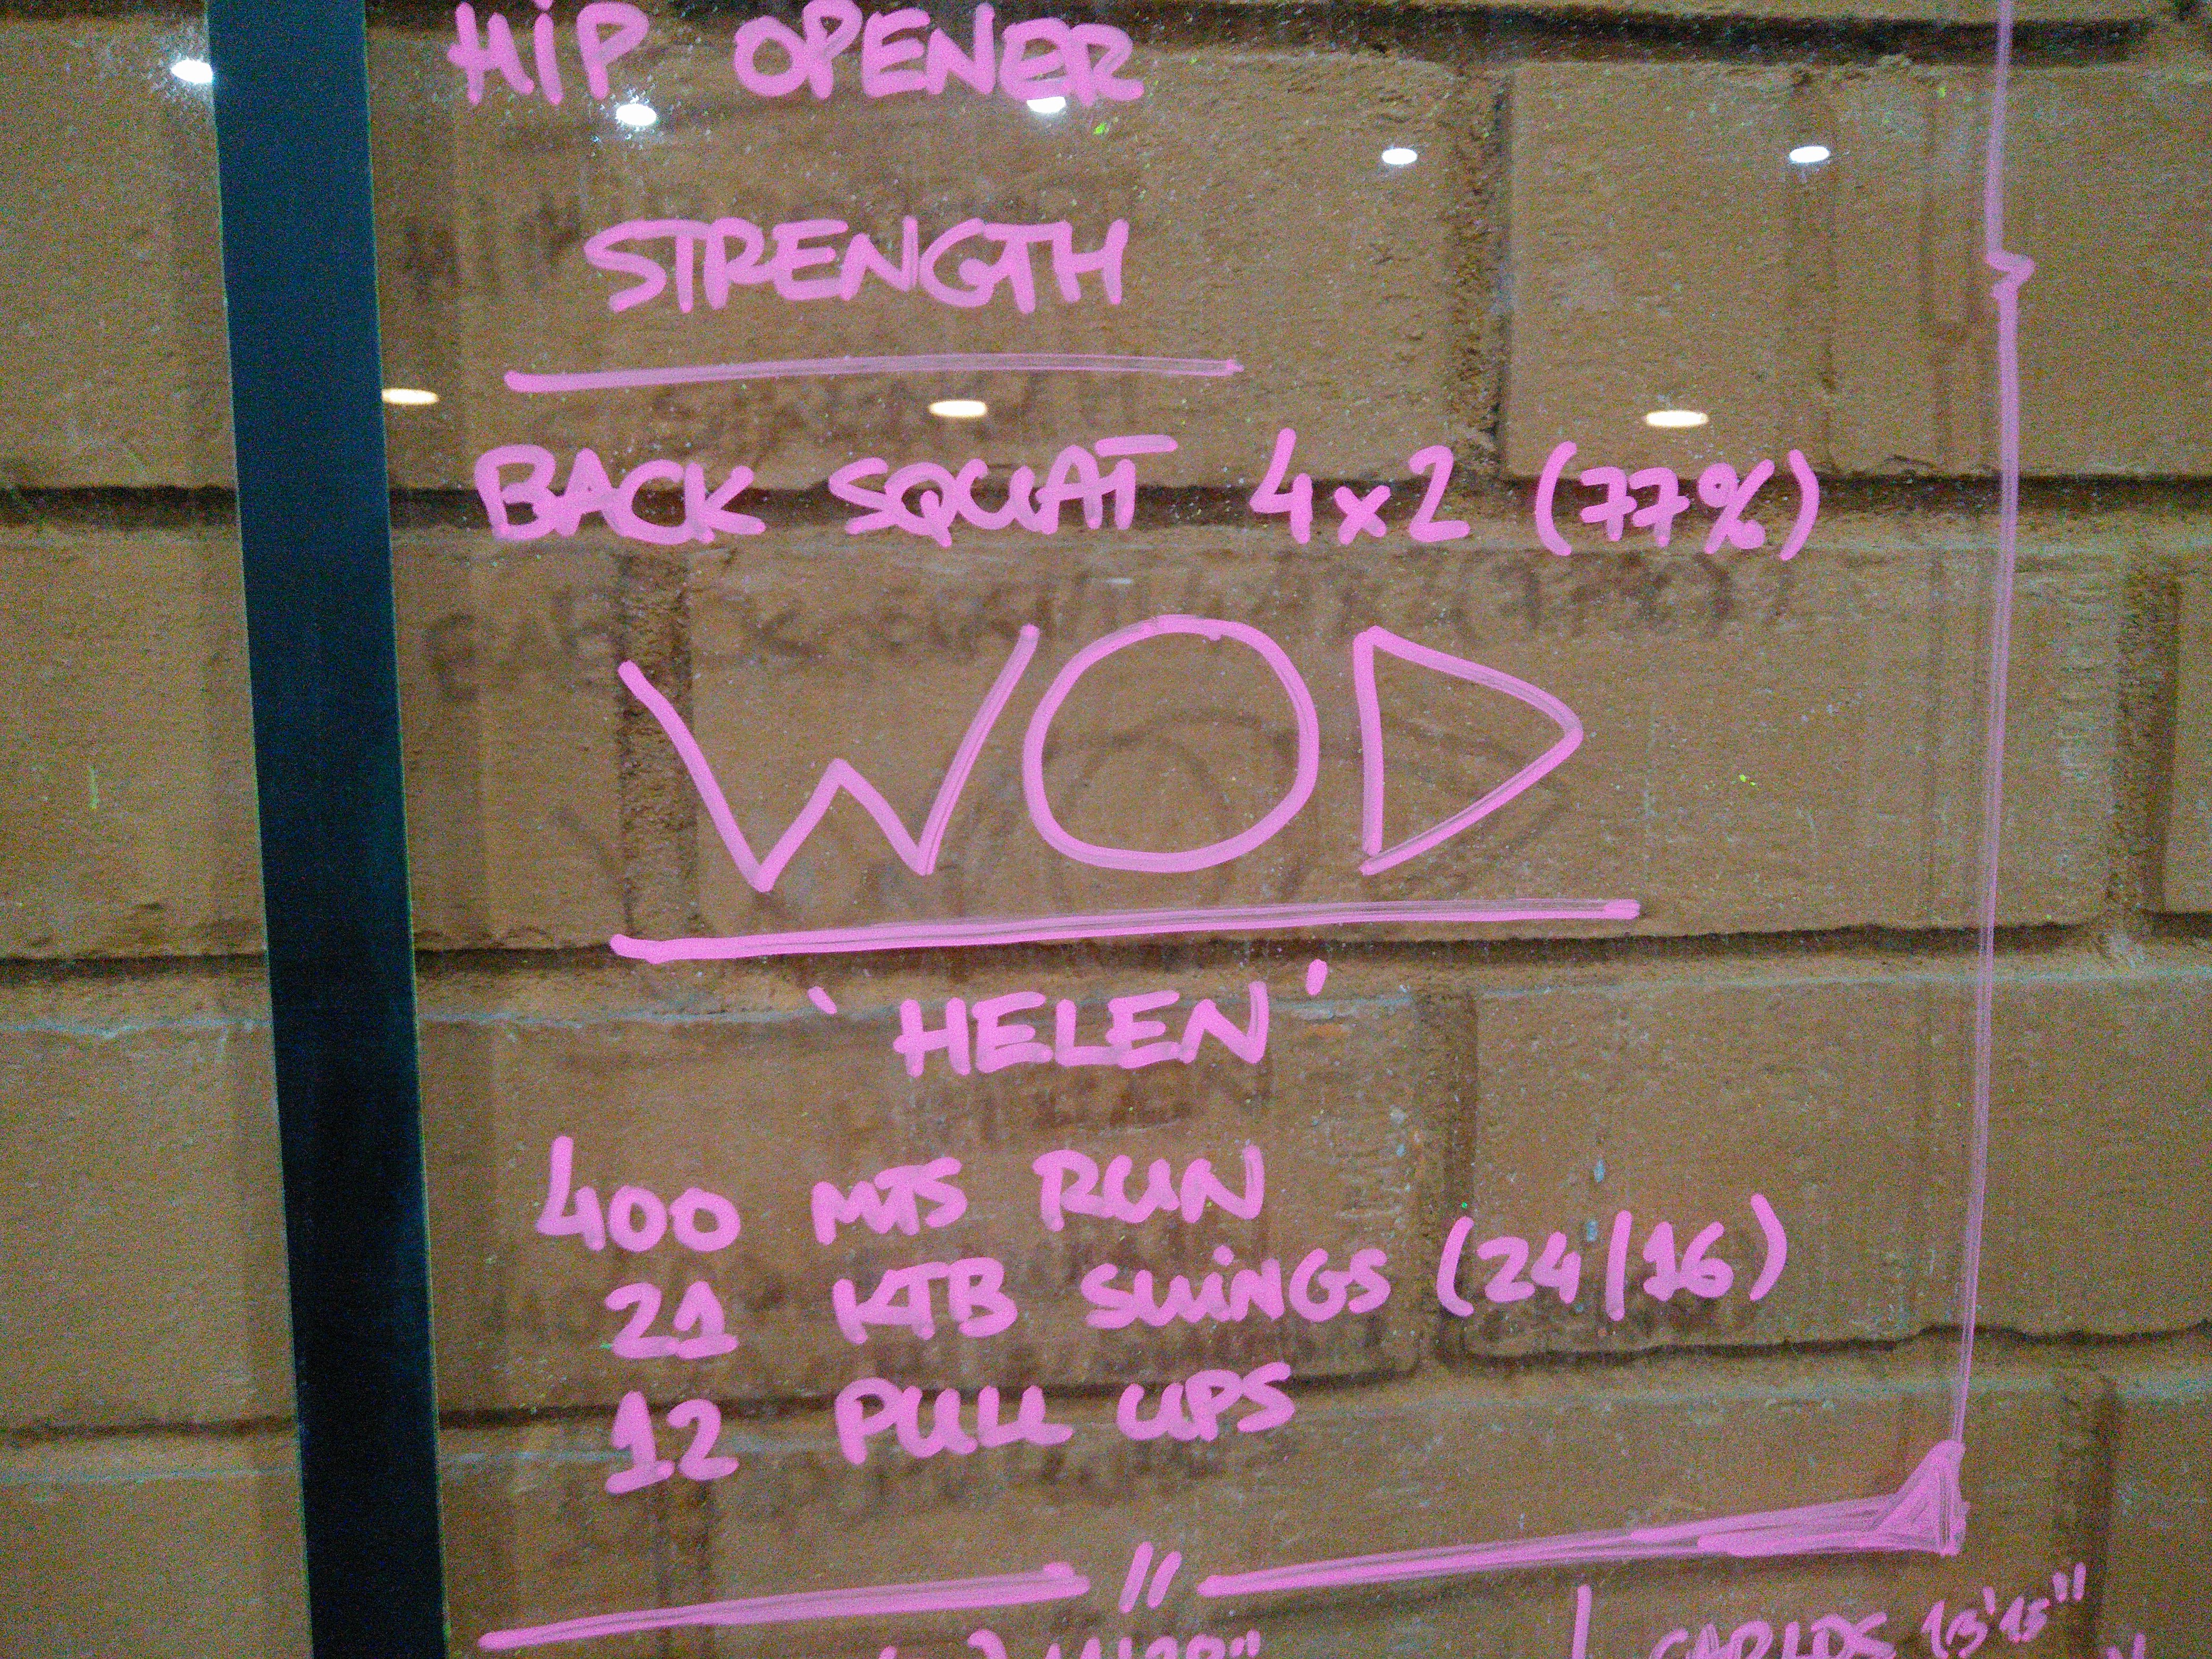 HIP OPENER
STRENGTH
BACK SQUAT 4x2 (77%)
WOD
'HELEN'
400 MTS RUN
21 KTB SWINGS (24/16)
12 PULL UPS
//
CARLOS 13'15"